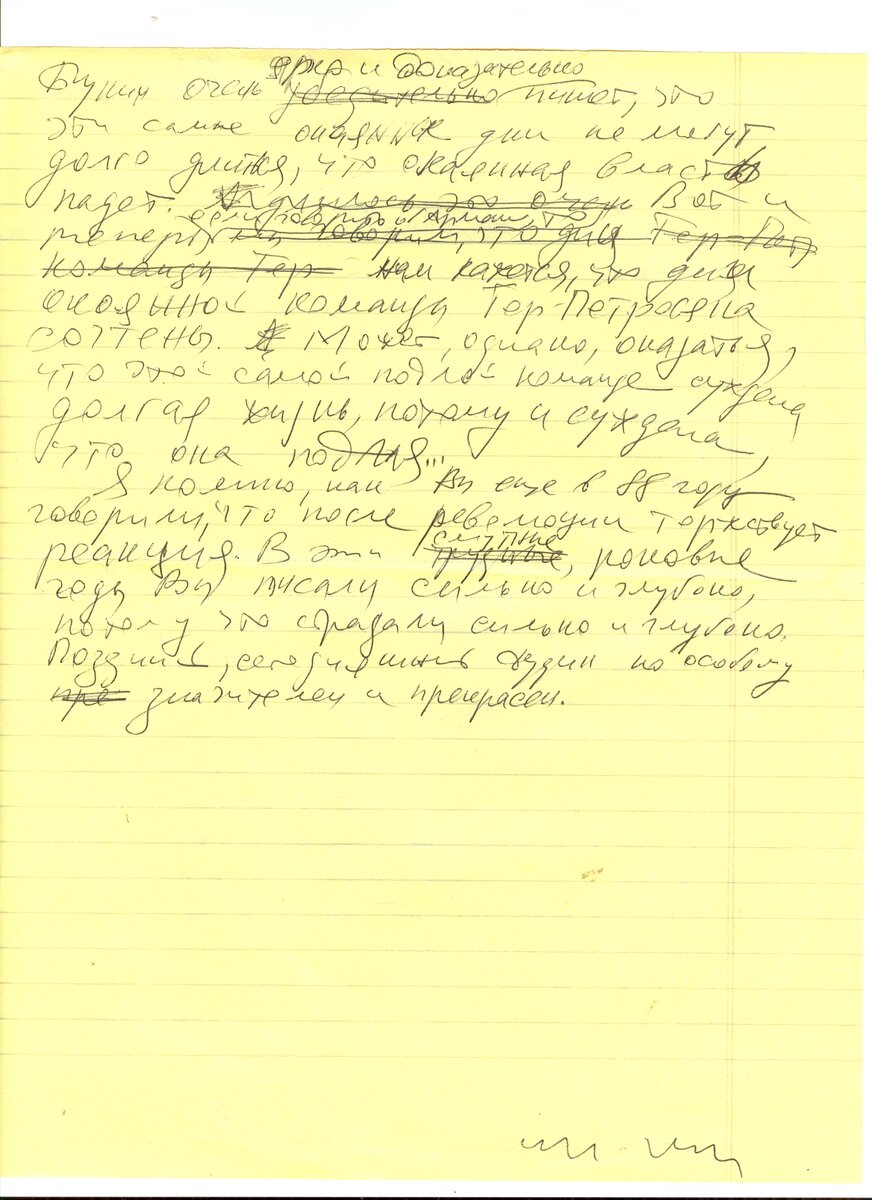 ярко и доказательно
Бунин очень убедительно пишет, что
эти самые окаянные дни не могут
долго длиться, что окаянная власть
падет. А длилось это очень Вот и
если говорить о Армении, то
теперь мы говорим, что дни Тер-Пет
команды Тер- нам кажется, что дни
окаянной команды Тер-Петросяна
сочтены. Может, однако, оказаться,
что этой самой подлой команде суждена
долгая жизнь, потому и суждена,
что она подлая...
Я помню, как Вы еще в 88 году
говорили, что после революции торжествует
смутные
реакция. В эти трудные, роковые
годы Вы писали сильно и глубоко,
потому что страдали сильно и глубоко.
Поздний, сегодняшний по особому
пре значителен и прекрасен.